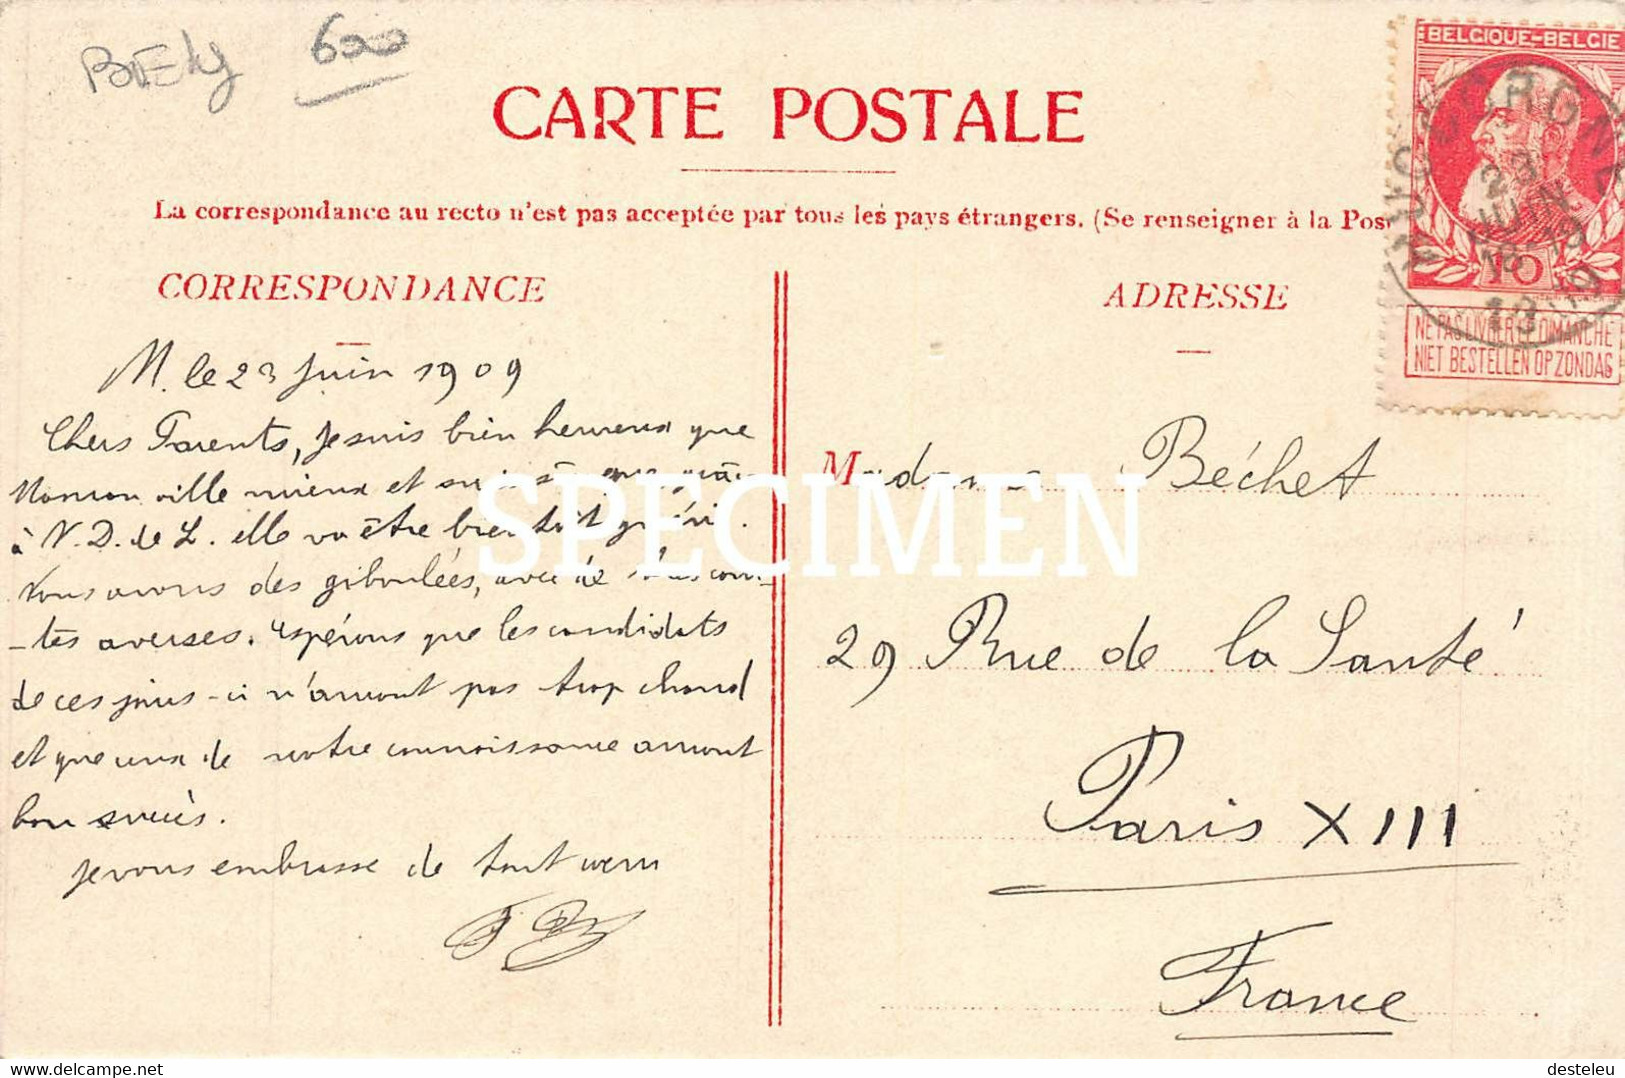 600
CARTE POSTALE
BELGIQUE-BELGIE
MOUSCRON
10
NE PAS LIVRER LE DIMANCHE
NIET BESTELLEN OP ZONDAG
La correspondance au recto n'est pas acceptée par tous les pays étrangers. (Se renseigner à la Pos
CORRESPONDANCE
M. le 23 Juin 1909
Chers Parents, je suis bien heureux que
Maman aille mieux et suis sûr que grâce
à N. D. de L. elle va être bientôt guérie.
Nous avons des giboulées, avec de
-tes averses. espérons que les candidats
de ces jours-ci n'auront pas trop chaud
et que ceux de notre connaissance auront
bon succès.
Je vous embrasse de tout cœur
ADRESSE
Madame Béchet
29 Rue de la Santé
Paris XIII
France
SPECIMEN
delcampe.net
desteleu